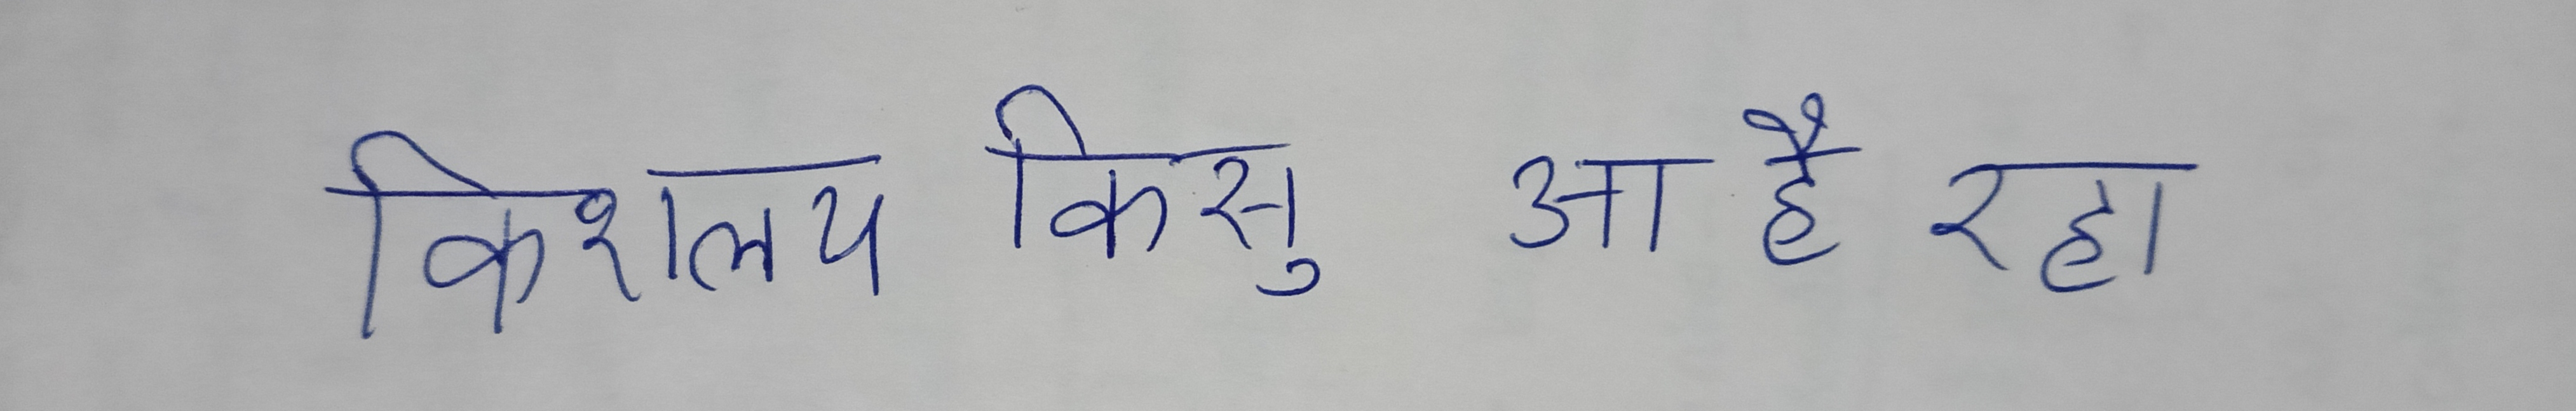 किशलय किसु आ है रहा